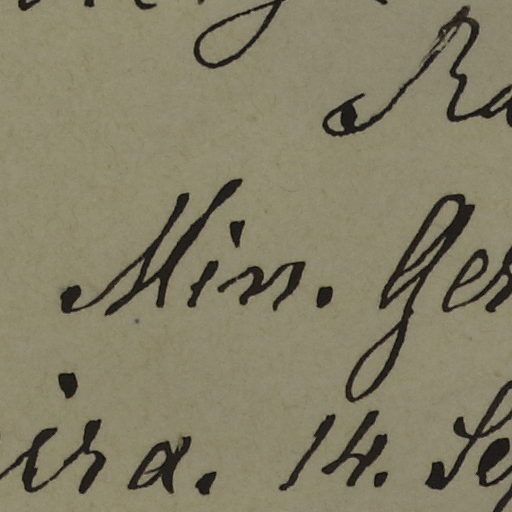 Ra
Min. Ger
ira. 14. Se